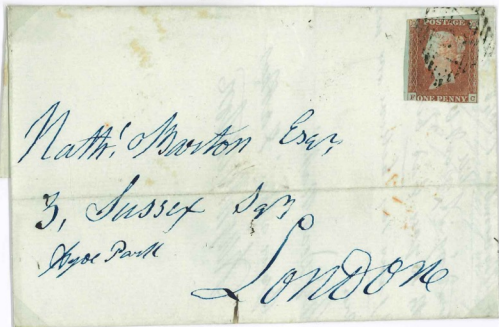 POSTAGE
ONE PENNY
Nathl. Barton Esqr,
3, Sussex Sqr
Hyde Park
London